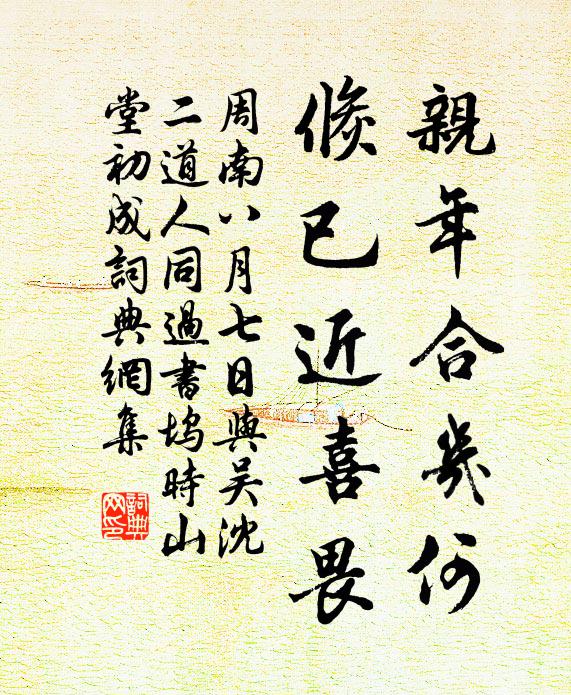 親年合幾何
倏已近喜畏
周南八月七日與吴沈
二道人同過書塢時山
堂初成詞典網集
詞典
网印